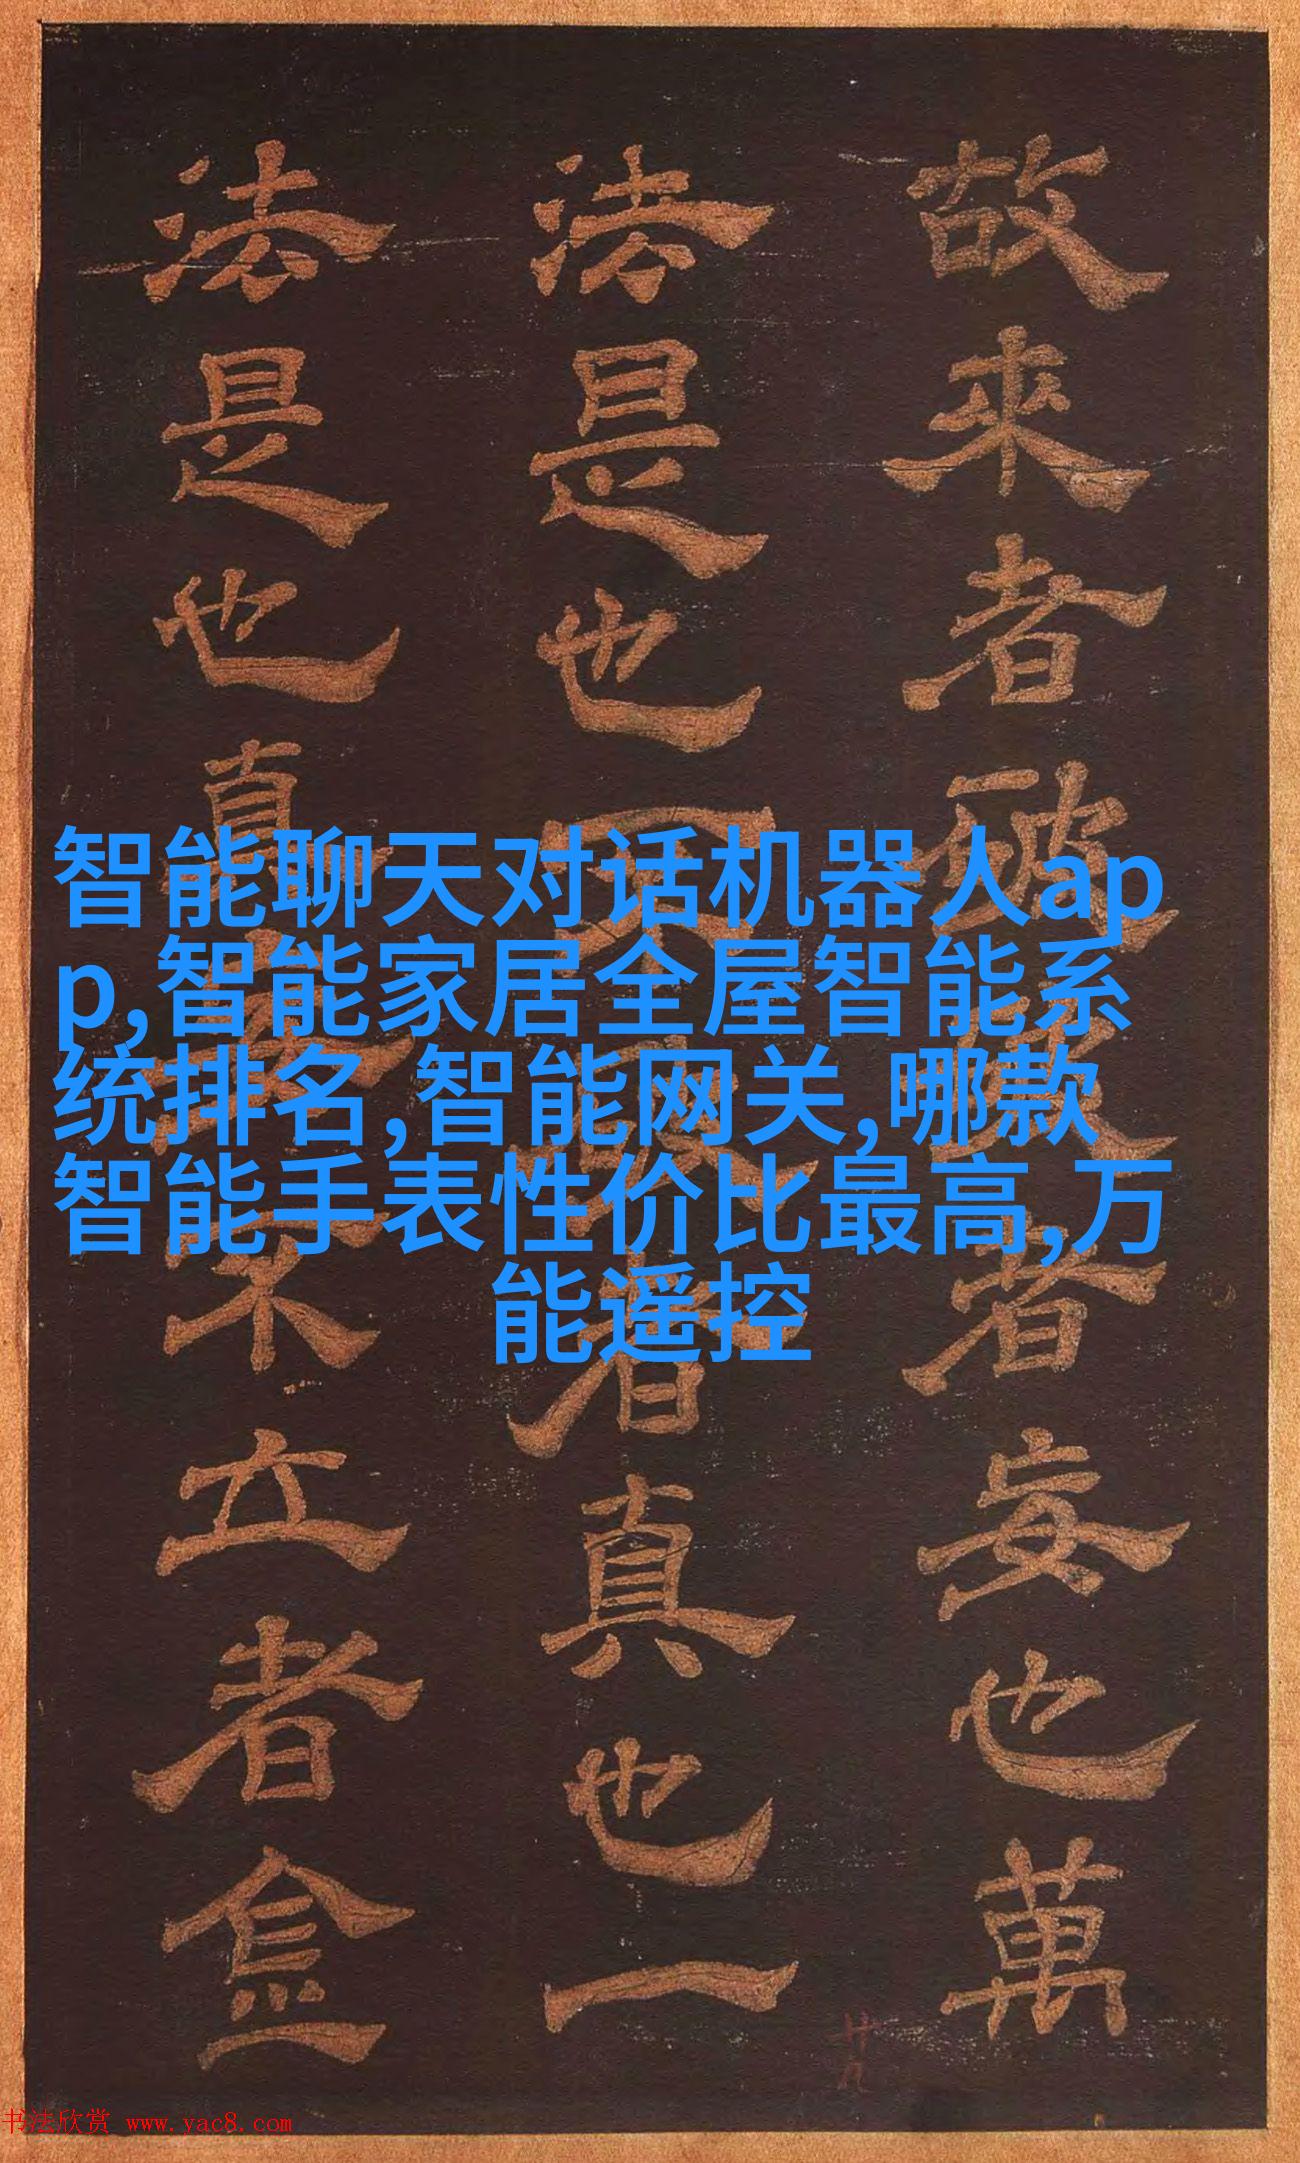 故來者破者妄也萬
法是也不者真也一
法是也真不立者
智能聊天对话机器人ap
p,智能家居全屋智能系
统排名,智能网关,哪款
智能手表性价比最高,万
能遥控
廿九
书法欣赏 www.yac8.com